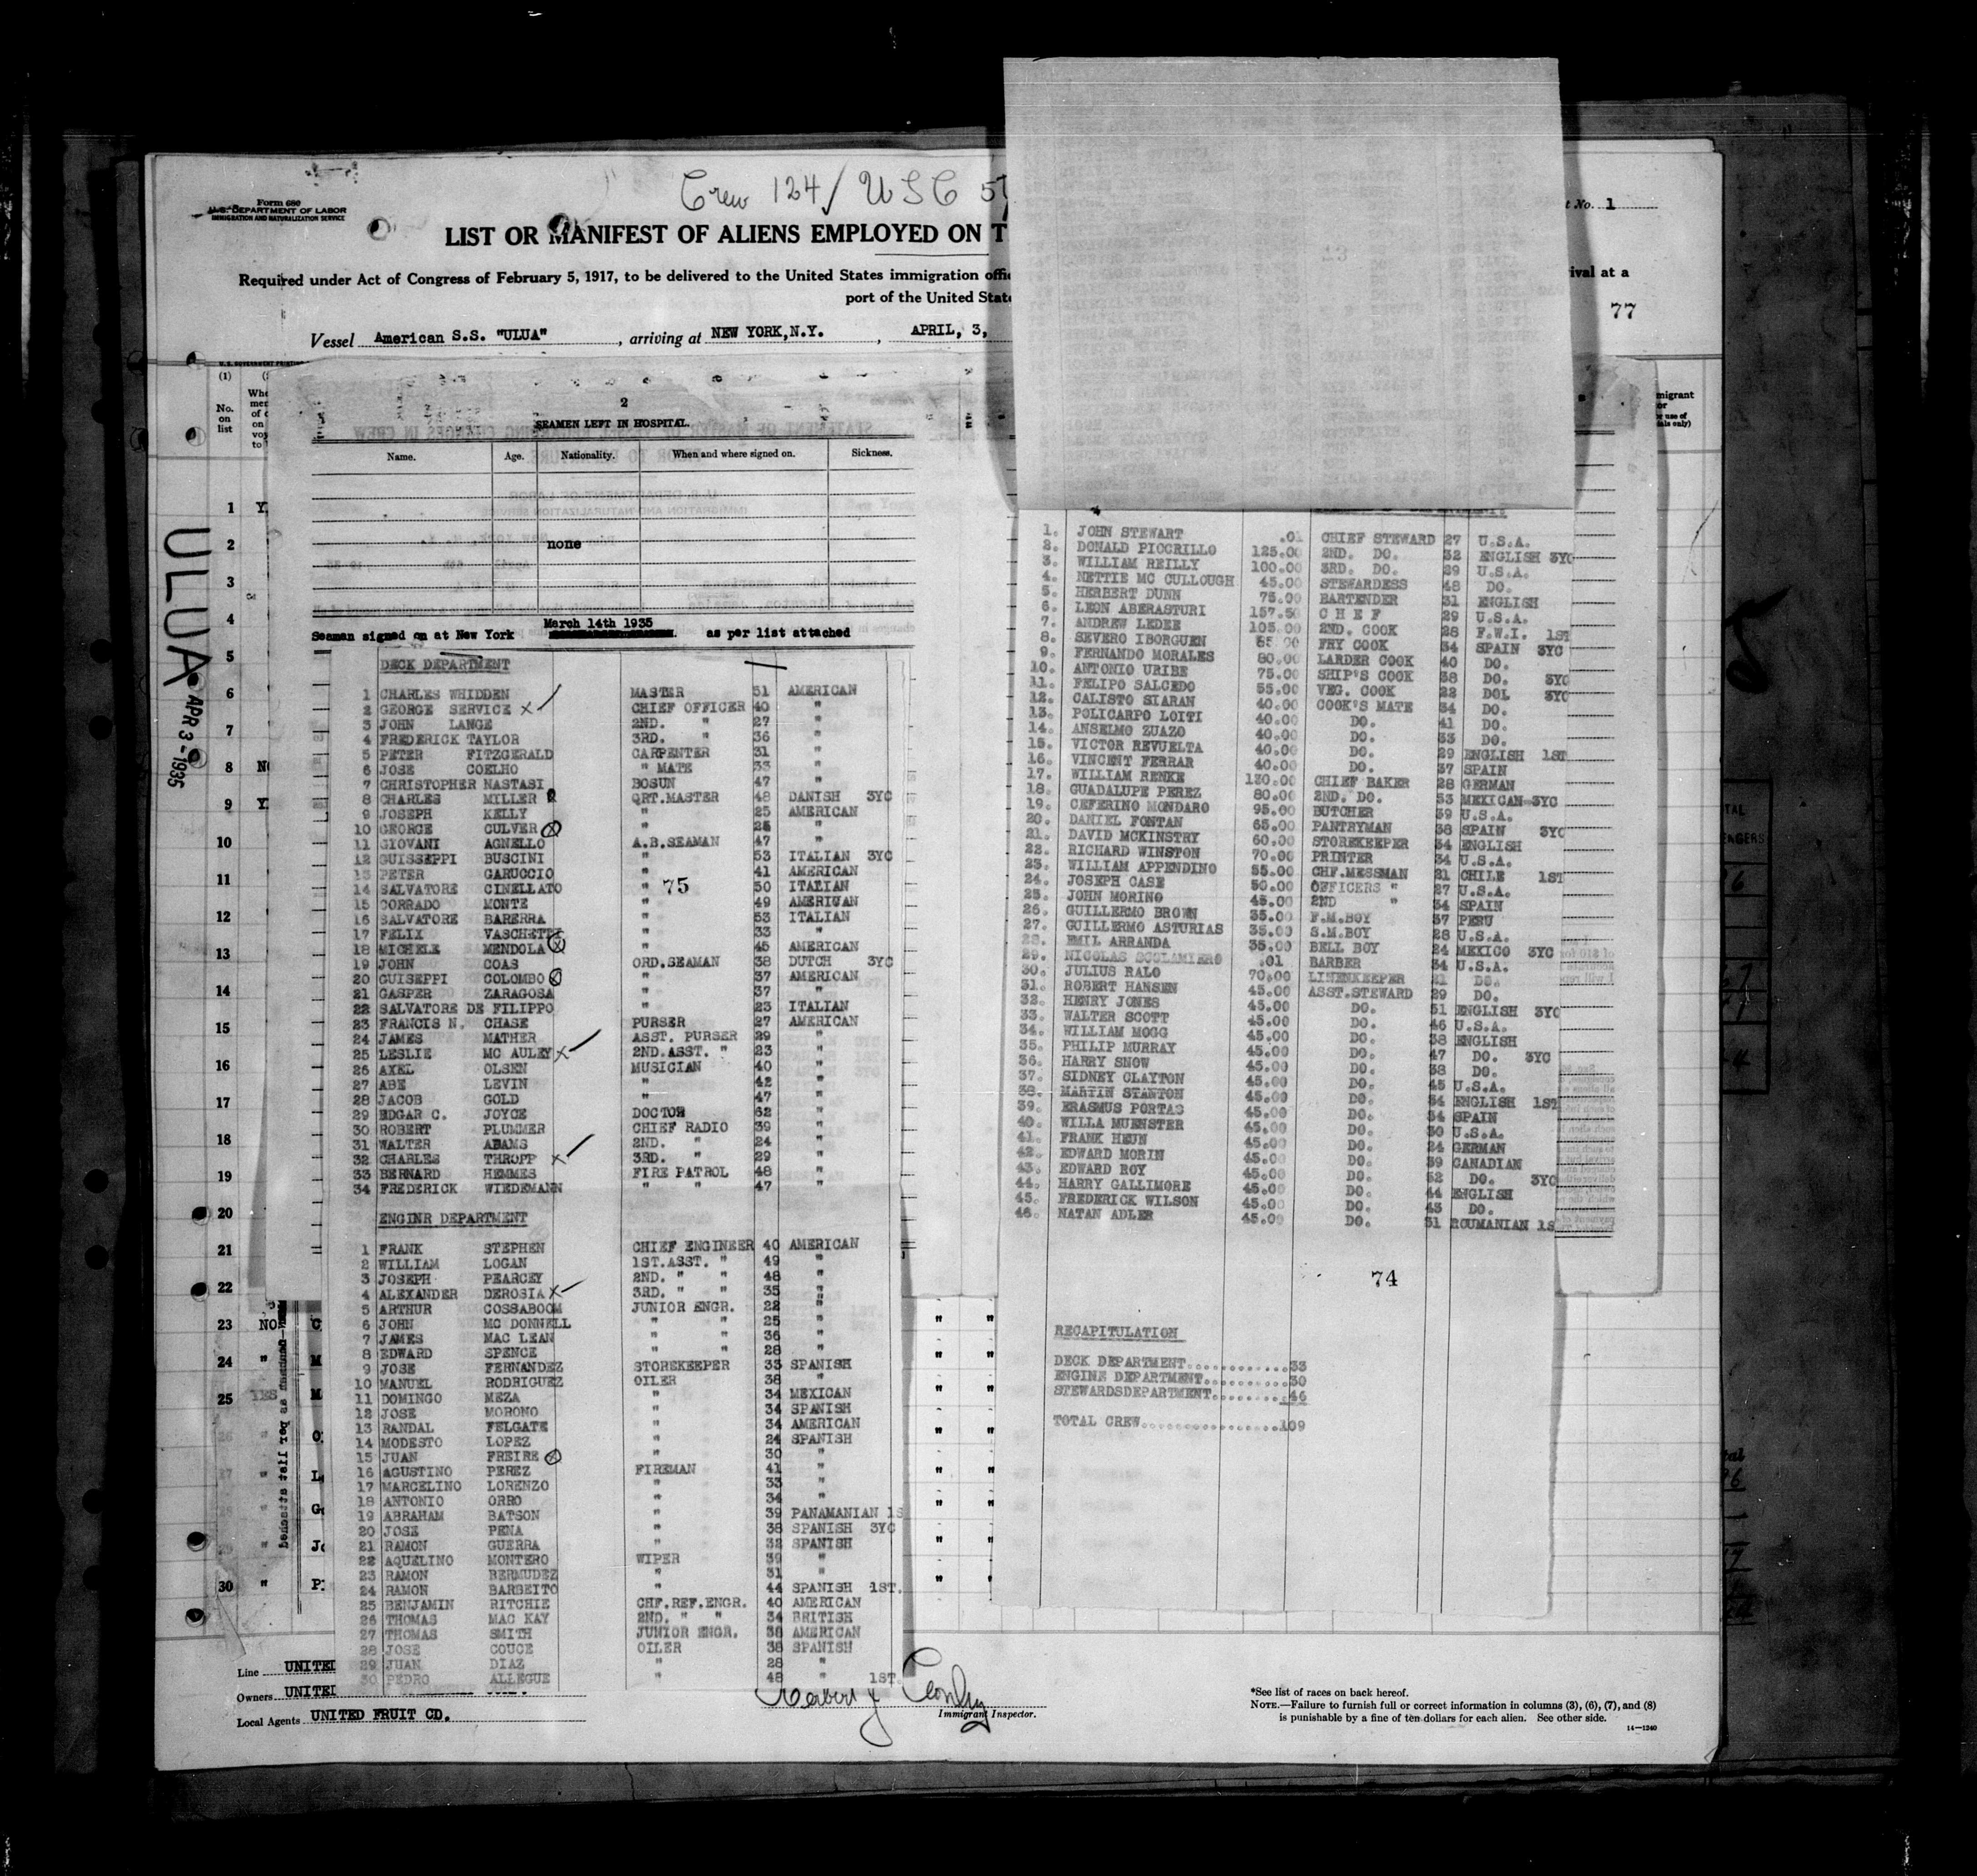 Form 680
U.S. DEPARTMENT OF LABOR
IMMIGRATION AND NATURALIZATION SERVICE
Crew 124/ USC 57
LIST OR MANIFEST OF ALIENS EMPLOYED ON T
t No. 1
Required under Act of Congress of February 5, 1917, to be delivered to the United States immigration offi
ival at a
port of the United State
77
Vessel American S.S. "ULUA", arriving at NEW YORK,N.Y., APRIL, 3,
ULUA
APR 3-1935
(1)
No. on list
2
SEAMEN LEFT IN HOSPITAL.
Name. Age. Nationality. When and where signed on. Sickness.
none
Seaman signed on at New York March 14th 1935 as per list attached
DECK DEPARTMENT
1 CHARLES WHIDDEN MASTER 51 AMERICAN
2 GEORGE SERVICE CHIEF OFFICER 40 "
3 JOHN LANGE 2ND. " 27 "
4 FREDERICK TAYLOR 3RD. " 36 "
5 PETER FITZGERALD CARPENTER 31 "
6 JOSE COELHO " MATE 33 "
7 CHRISTOPHER NASTASI BOSUN 47 "
8 CHARLES MILLER QRT.MASTER 48 DANISH 3YC
9 JOSEPH KELLY " 25 AMERICAN
10 GEORGE CULVER " 25 "
11 GIOVANI AGNELLO A.B.SEAMAN 47 "
12 GUISSEPPI BUSCINI " 53 ITALIAN 3YC
13 PETER GARUCCIO " 41 AMERICAN
14 SALVATORE CINELLATO " 50 ITALIAN
75
15 CORRADO MONTE " 49 AMERICAN
16 SALVATORE BARERRA " 53 ITALIAN
17 FELIX VASCHETTI " 33 "
18 MICHELE MENDOLA " 45 AMERICAN
19 JOHN COAS ORD.SEAMAN 38 DUTCH 3YC
20 GUISEPPI COLOMBO " 37 AMERICAN
21 GASPER ZARAGOSA " 37 "
22 SALVATORE DE FILIPPO " 23 ITALIAN
23 FRANCIS N. CHASE PURSER 27 AMERICAN
24 JAMES MATHER ASST. PURSER 29 "
25 LESLIE MC AULEY 2ND.ASST. " 23 "
26 AXEL OLSEN MUSICIAN 40 "
27 ABE LEVIN " 42 "
28 JACOB GOLD " 47 "
29 EDGAR C. JOYCE DOCTOR 62 "
30 ROBERT PLUMMER CHIEF RADIO 39 "
31 WALTER ADAMS 2ND. " 24 "
32 CHARLES THROPP 3RD. " 29 "
33 BERNARD HEMMES FIRE PATROL 48 "
34 FREDERICK WIEDEMANN " " 47 "
ENGINR DEPARTMENT
1 FRANK STEPHEN CHIEF ENGINEER 40 AMERICAN
2 WILLIAM LOGAN 1ST.ASST. " 49 "
3 JOSEPH PEARCEY 2ND. " " 48 "
4 ALEXANDER DEROSIA 3RD. " " 35 "
5 ARTHUR COSSABOOM JUNIOR ENGR. 22 "
6 JOHN MC DONNELL " " 25 "
7 JAMES MAC LEAN " " 36 "
8 EDWARD SPENCE " " 28 "
9 JOSE FERNANDEZ STOREKEEPER 33 SPANISH
10 MANUEL RODRIGUEZ OILER 38 "
11 DOMINGO MEZA " 34 MEXICAN
12 JOSE MORONO " 34 SPANISH
13 RANDAL FELGATE " 34 AMERICAN
14 MODESTO LOPEZ " 24 SPANISH
15 JUAN FREIRE " 30 "
16 AGUSTINO PEREZ FIREMAN 41 "
17 MARCELINO LORENZO " 33 "
18 ANTONIO ORRO " 34 "
19 ABRAHAM BATSON " 39 PANAMANIAN 1S
20 JOSE PENA " 38 SPANISH 3YC
21 RAMON GUERRA " 32 SPANISH
22 AQUELINO MONTERO WIPER 39 "
23 RAMON BERMUDEZ " 31 "
24 RAMON BARBEITO " 44 SPANISH 1ST.
25 BENJAMIN RITCHIE CHF.REF.ENGR. 40 AMERICAN
26 THOMAS MAC KAY 2ND. " " 34 BRITISH
27 THOMAS SMITH JUNIOR ENGR. 38 AMERICAN
28 JOSE COUCE OILER 38 SPANISH
29 JUAN DIAZ " 28 "
30 PEDRO ALLEGUE " 48 " 1ST.
1. JOHN STEWART .01 CHIEF STEWARD 27 U.S.A.
2. DONALD PICCRILLO 125.00 2ND. DO. 32 ENGLISH 3YC
3. WILLIAM REILLY 100.00 3RD. DO. 29 U.S.A.
4. NETTIE MC CULLOUGH 45.00 STEWARDESS 48 DO.
5. HERBERT DUNN 75.00 BARTENDER 31 ENGLISH
6. LEON ABERASTURI 157.50 C H E F 29 U.S.A.
7. ANDREW LEDEE 105.00 2ND. COOK 28 F.W.I. 1ST
8. SEVERO IBORGUEN 85.00 FRY COOK 34 SPAIN 3YC
9. FERNANDO MORALES 80.00 LARDER COOK 40 DO.
10. ANTONIO URIBE 75.00 SHIP'S COOK 38 DO. 3YC
11. FELIPO SALCEDO 55.00 VEG. COOK 22 DOL 3YC
12. CALISTO SIARAN 40.00 COOK'S MATE 34 DO.
13. POLICARPO LOITI 40.00 DO. 41 DO.
14. ANSELMO ZUAZO 40.00 DO. 33 DO.
15. VICTOR REVUELTA 40.00 DO. 29 ENGLISH 1ST
16. VINCENT FERRAR 40.00 DO. 37 SPAIN
17. WILLIAM RENKE 130.00 CHIEF BAKER 28 GERMAN
18. GUADALUPE PEREZ 80.00 2ND. DO. 53 MEXICAN 3YC
19. CEFERINO MONDARO 95.00 BUTCHER 39 U.S.A.
20. DANIEL FONTAN 65.00 PANTRYMAN 38 SPAIN 3YC
21. DAVID MCKINSTRY 60.00 STOREKEEPER 34 ENGLISH
22. RICHARD WINSTON 70.00 PRINTER 34 U.S.A.
23. WILLIAM APPENDINO 55.00 CHF.MESSMAN 21 CHILE 1ST
24. JOSEPH CASE 50.00 OFFICERS " 27 U.S.A.
25. JOHN MORINO 45.00 2ND " 34 SPAIN
26. GUILLERMO BROWN 35.00 F.M.BOY 37 PERU
27. GUILLERMO ASTURIAS 35.00 S.M.BOY 28 U.S.A.
28. EMIL ARRANDA 35.00 BELL BOY 24 MEXICO 3YC
29. NICOLAS SCOLAMIERO .01 BARBER 34 U.S.A.
30. JULIUS RALO 70.00 LINENKEEPER 21 DO.
31. ROBERT HANSEN 45.00 ASST.STEWARD 29 DO.
32. HENRY JONES 45.00 DO. 51 ENGLISH 3YC
33. WALTER SCOTT 45.00 DO. 46 U.S.A.
34. WILLIAM MOGG 45.00 DO. 38 ENGLISH
35. PHILIP MURRAY 45.00 DO. 47 DO. 3YC
36. HARRY SNOW 45.00 DO. 38 DO.
37. SIDNEY CLAYTON 45.00 DO. 45 U.S.A.
38. MARTIN STANTON 45.00 DO. 34 ENGLISH 1ST
39. ERASMUS PORTAS 45.00 DO. 34 SPAIN
40. WILLA MUENSTER 45.00 DO. 30 U.S.A.
41. FRANK HEUN 45.00 DO. 24 GERMAN
42. EDWARD MORIN 45.00 DO. 39 CANADIAN
43. EDWARD ROY 45.00 DO. 52 DO. 3YC
44. HARRY GALLIMORE 45.00 DO. 44 ENGLISH
45. FREDERICK WILSON 45.00 DO. 43 DO.
46. NATAN ADLER 45.00 DO. 31 ROUMANIAN 1S
74
RECAPITULATION
DECK DEPARTMENT............33
ENGINE DEPARTMENT..........30
STEWARDSDEPARTMENT.........46
TOTAL CREW.................109
Line UNITED
Owners UNITED
Local Agents UNITED FRUIT CD.
Immigrant Inspector.
*See list of races on back hereof.
NOTE.—Failure to furnish full or correct information in columns (3), (6), (7), and (8)
is punishable by a fine of ten dollars for each alien. See other side.
14—1240